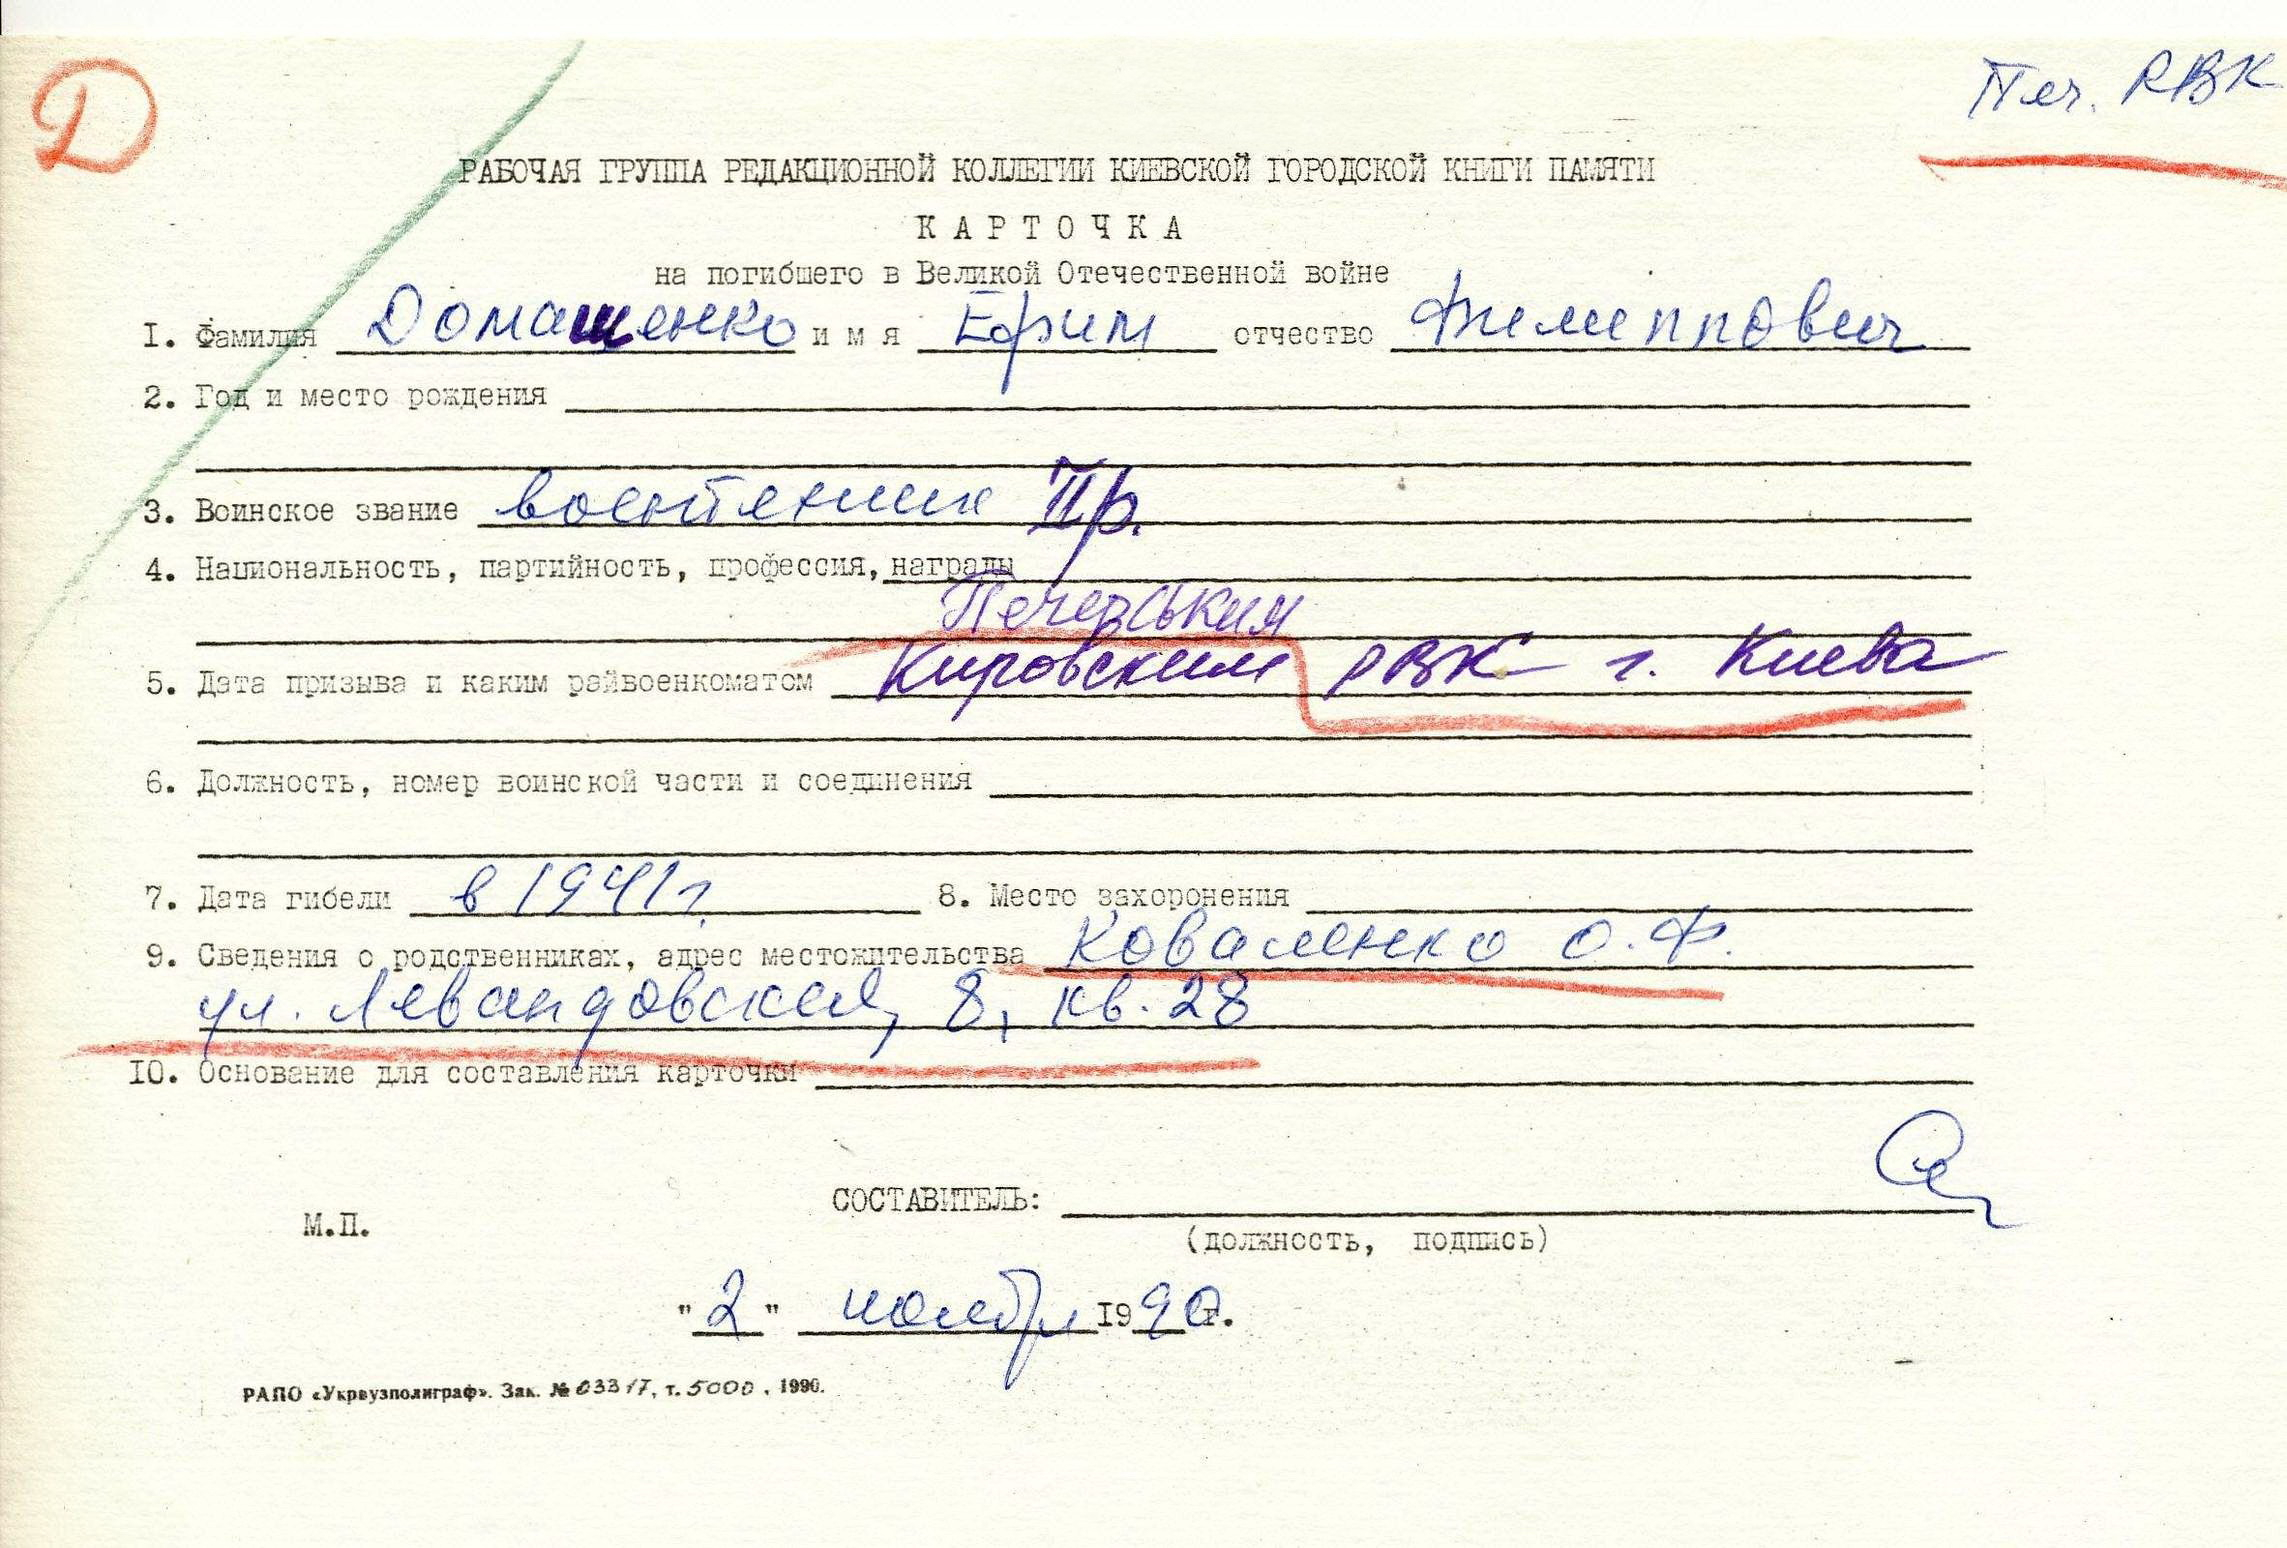 Д
Печ. РВК
РАБОЧАЯ ГРУППА РЕДАКЦИОННОЙ КОЛЛЕГИИ КИЕВСКОЙ ГОРОДСКОЙ КНИГИ ПАМЯТИ
КАРТОЧКА
на погибшего в Великой Отечественной войне
1. Фамилия Домашенко имя Ефим отчество Филиппович
2. Год и место рождения
3. Воинское звание воентехник II р.
4. Национальность, партийность, профессия, награды
Печерським
5. Дата призыва и каким райвоенкоматом Кировским РВК г. Киева
6. Должность, номер воинской части и соединения
7. Дата гибели в 1941 г. 8. Место захоронения
9. Сведения о родственниках, адрес местожительства Коваленко О.Ф.
ул. Левандовская, 8, кв. 28
10. Основание для составления карточки
СОСТАВИТЕЛЬ:
М.П.
(должность, подпись)
"2" ноября 1990 г.
РАПО «Укрвузполиграф». Зак. № 03317, т. 5000, 1990.